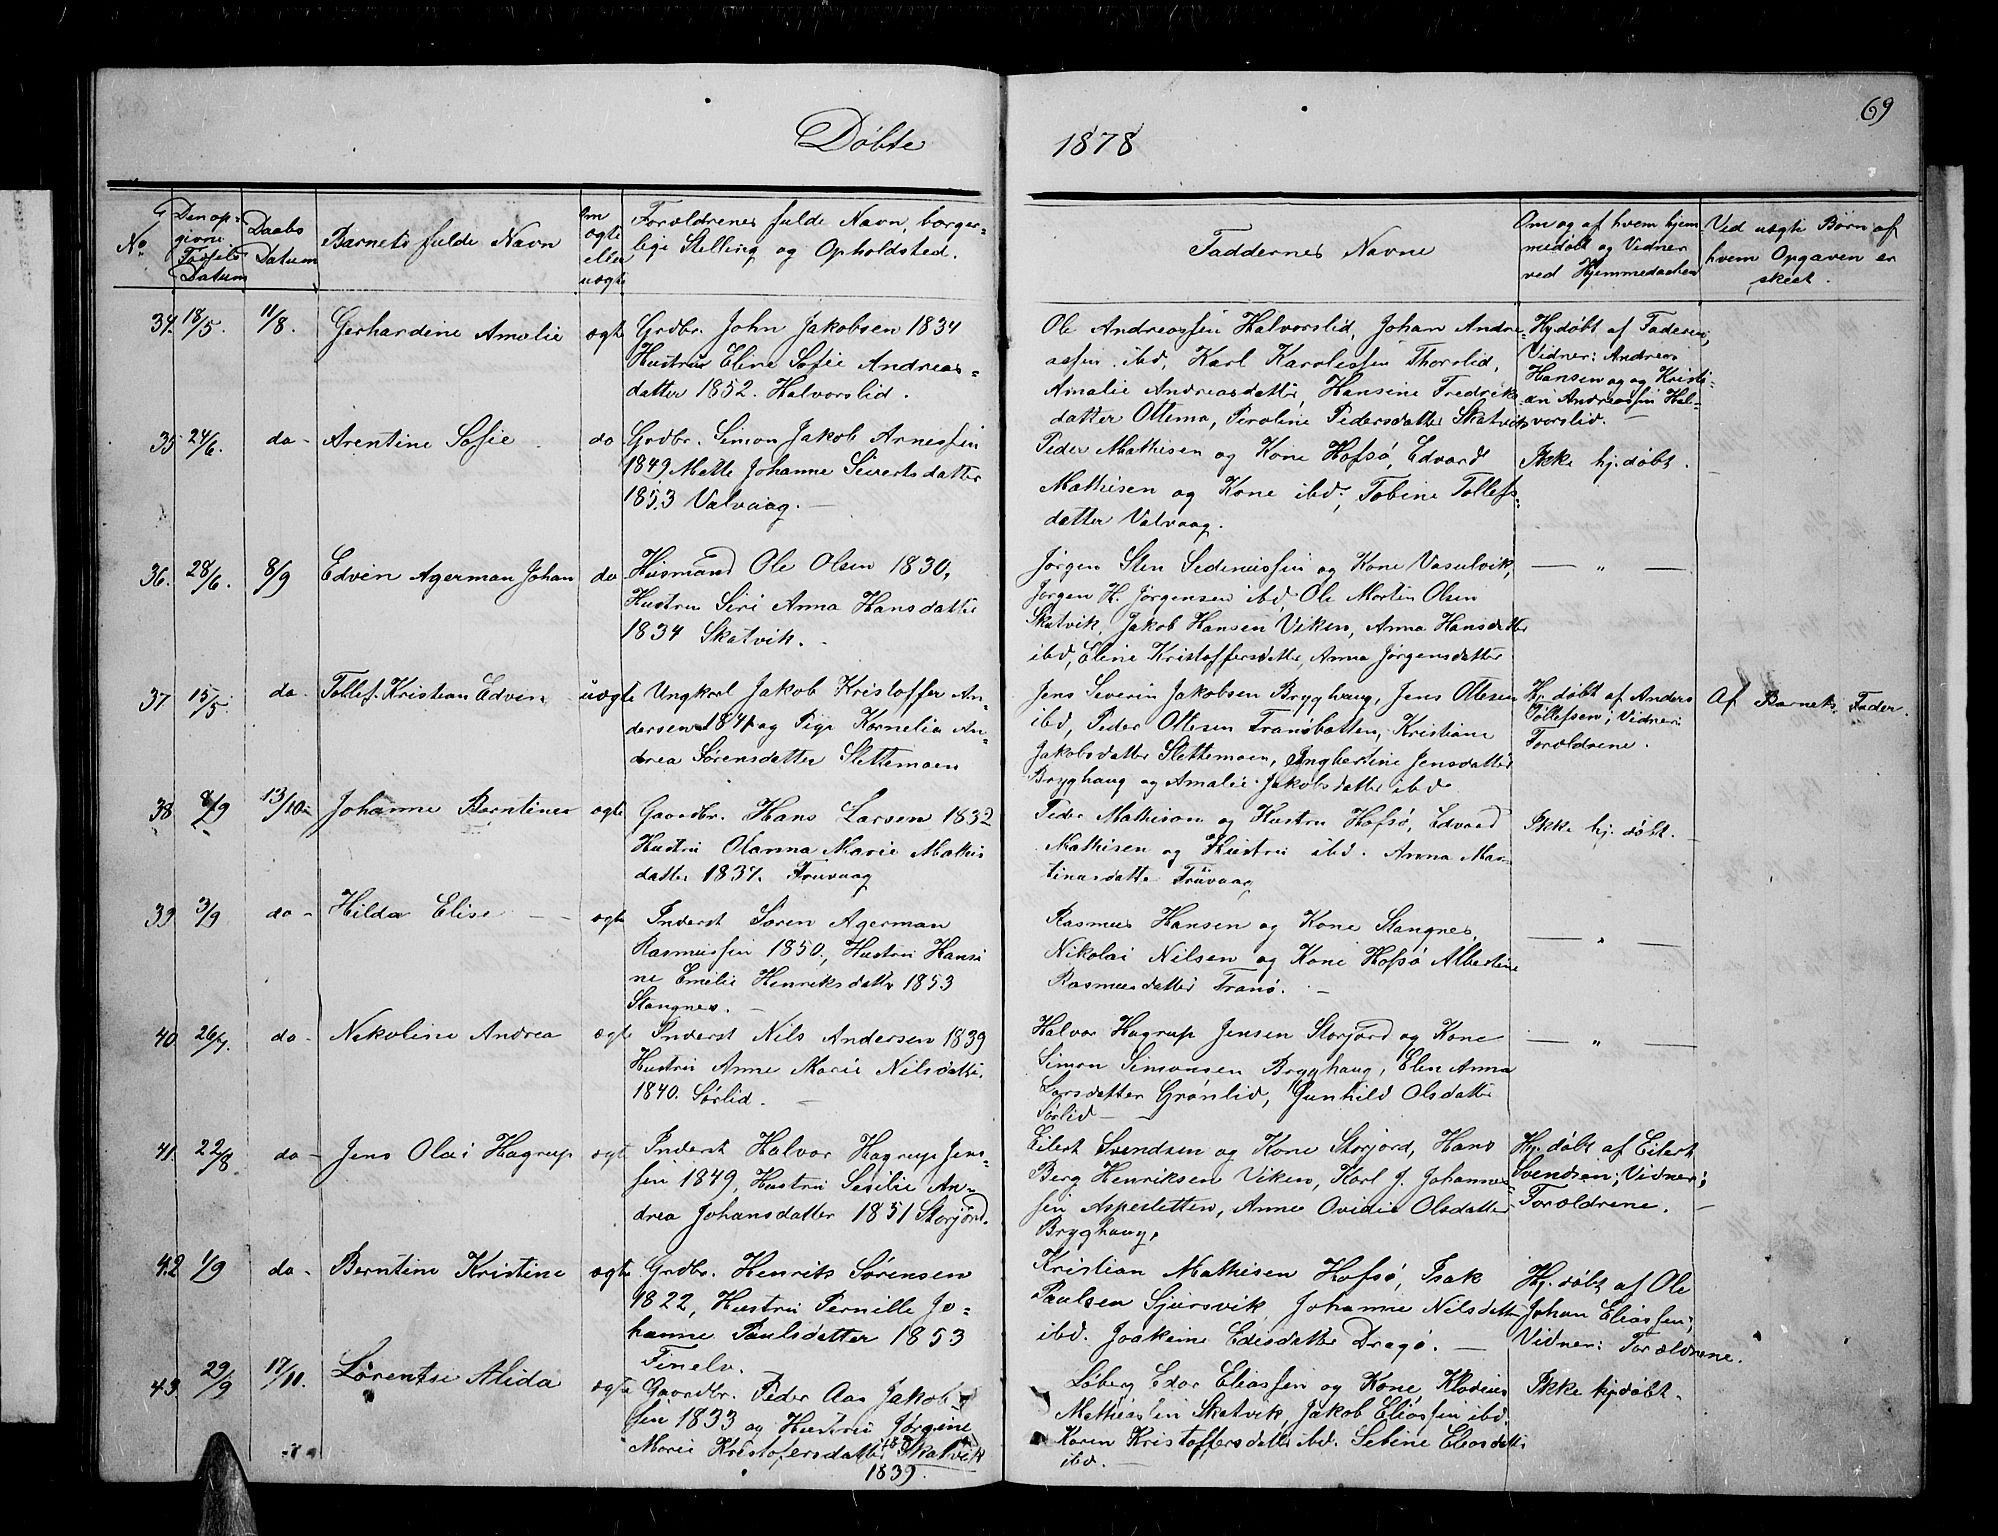 69
Døbte
1878
No
Den op-
givne
Fødsels
Datum
Daabs
Datum
Barnets fulde Navn
Om
ægte
eller
uægte
Forældrenes fulde Navn, borger-
lige Stelling og Opholdsted.
Faddernes Navne
Om og af hvem hjem
medøbt og Vidner
ved Hjemmedaaben
Ved uægte Børn af
hvem Opgaven er
skeet.
34. 18/5. 11/8. Gerhardine Amalie ægte
Grdbr. John Jakobsen 1834
Hustru Eline Sofie Andreas-
datter 1852. Halvorslid.
Ole Andreassen Halvorslid, Johan Andre-
assen ibd, Karl Karolissen Thorslid,
Amalie Andreasdatter, Hansine Fredrik
datter Ottema, Peroline Pedersdatter Skatvik
Hj.døbt af Faderen,
Vidner: Andreas
Hansen og Kristi-
an Andreassen Hal-
vorslid.
35 24/6. do - Arentine Sofie do
Grdbr. Simon Jakob Arnessen
1849, Mette Johanne Sivertsdatter
1853 Valvaag.
Peder Mathisen og Kone Hofsø, Edvard
Mathisen og Kone ibd, Tobine Tollefs-
datter Valvaag.
Ikke hj.døbt.
36. 28/6. 8/9 Edvin Agerman Johan do
Husmand Ole Olsen 1830,
Hustru Siri Anna Hansdatter
1834 Skatvik.
Jørgen Sten Sedeniussen og Kone Vasulvik,
Jørgen H. Jørgensen ibd, Ole Morten Olsen
Skatvik, Jakob Hansen Viken, Anna Hansdatter
ibd, Eline Kristoffersdatter, Anna Jørgensdatter
— " —
37 15/5. do - Tollef Kristian Edvin uægte
Ungkarl Jakob Kristoffer An-
dersen 1841 og Pige Kornelia An-
drea Sørensdatter Slettemoen
Jens Severin Jakobsen Brygghaug, Jens Ottesen
ibd, Peder Ottesen Tranøbotten, Kristiane
Jakobsdatter Slettemoen, Ingbertine Jensdatter
Brygghaug og Amalie Jakobsdatter ibd
Hj. døbt af Anders
Tollefsen; Vidner:
Forældrene.
Af Barnets Fader.
38 8/9 13/10 Johanne Berntine ægte
Gaardbr. Hans Larsen 1832
Hustru Olanna Marie Mathis
datter 1837. Fruvaag
Peder Mathisen og Hustru Hofsø, Edvard
Mathisen og Hustru ibd. Anna Mar-
tinusdatter Fruvaag
Ikke hj. døbt.
39 3/9 do - Hilda Elise - - ægte
Inderst Søren Agerman
Rasmussen 1850, Hustru Hansi
ne Emelie Henriksdatter 1853
Stangnes.
Rasmus Hansen og Kone Stangnes,
Nikolai Nilsen og Kone Hofsø Albertine
Rasmusdatter Tranø.
— " —
40 26/7. do - Nikoline Andrea ægte
Inderst Nils Andersen 1839
Hustru Anne Marie Nilsdatter
1840. Sørlid.
Halvor Hagrup Jensen Storjord og Kone
Simon Simonsen Brygghaug, Elen Anna
Larsdatter Grønlid, Gunhild Olsdatter
Sørlid
— " —
41. 22/8 do - Jens Olai Hagrup ægte
Inderst Halvor Hagrup Jens-
sen 1849, Hustru Sesilie An-
drea Johansdatter 1851 Storjord.
Eilert Svendsen og Kone Storjord, Hans
Berg Henriksen Viken, Karl J. Johannes-
sen Aspesletten, Anne Ovidie Olsdatter
Brygghaug,
Hj. døbt af Eilert
Svendsen; Vidner;
Forældrene.
42 1/9 do - Berntine Kristine ægte
Grdbr. Henrik Sørensen
1822, Hustru Pernille Jo-
hanne Paulsdatter 1853
Finelv.
Kristian Mathisen Hofsø, Isak
Paulsen Sjursvik, Johanne Nilsdatter
ibd. Joakime Edisdatter Dragø.
Hj. døbt af Ole
Johan Eliassen;
Vidner: Forældrene.
43. 29/9 17/11. Lorentse Alida ægte
Gaardbr. Peder Aas Jakob-
sen 1833 og Hustru Jørgine
Marie Kristoffersdatter Skatvik
1839.
Løberg Edor Eliassen og Kone, Klodius
Mathiassen Skatvik, Jakob Eliassen ibd.
Karen Kristoffersdatter ibd. Sebine Eliasdatter
ibd.
Ikke hj.døbt.